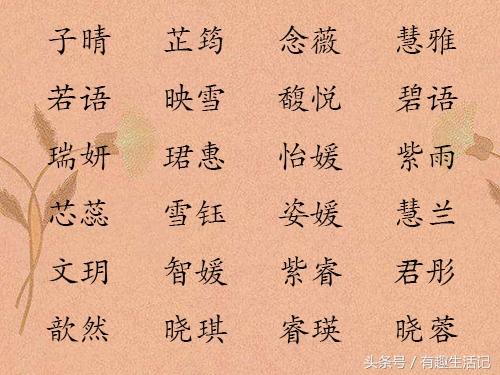 子晴 芷筠 念薇 慧雅
若语 映雪 馥悦 碧语
瑞妍 珺惠 怡媛 紫雨
芯蕊 雪钰 姿媛 慧兰
文玥 智媛 紫睿 君彤
歆然 晓琪 睿瑛 晓蓉
头条号 / 有趣生活记